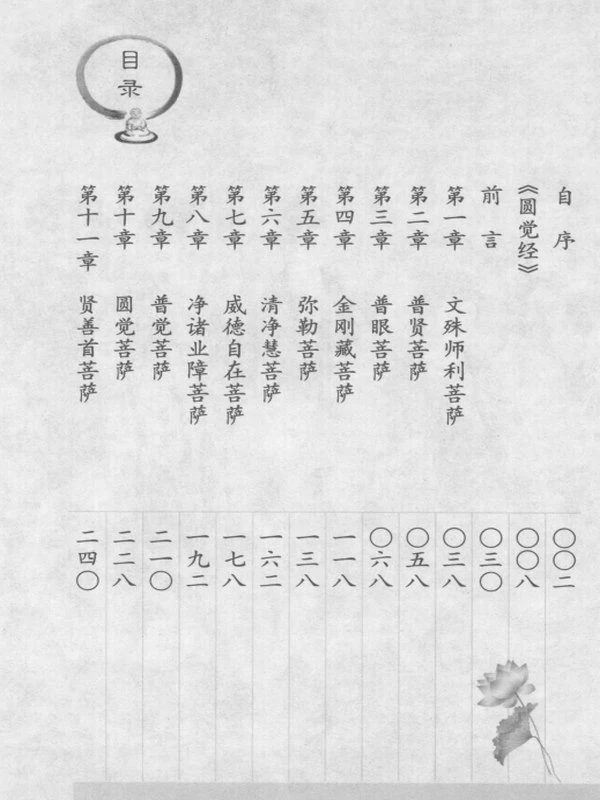 目录
自序 〇〇二
《圆觉经》 〇〇八
前言 〇三〇
第一章 文殊师利菩萨 〇三八
第二章 普贤菩萨 〇五八
第三章 普眼菩萨 〇六八
第四章 金刚藏菩萨 一一八
第五章 弥勒菩萨 一三八
第六章 清净慧菩萨 一六二
第七章 威德自在菩萨 一七八
第八章 净诸业障菩萨 一九二
第九章 普觉菩萨 二一〇
第十章 圆觉菩萨 二二八
第十一章 贤善首菩萨 二四〇